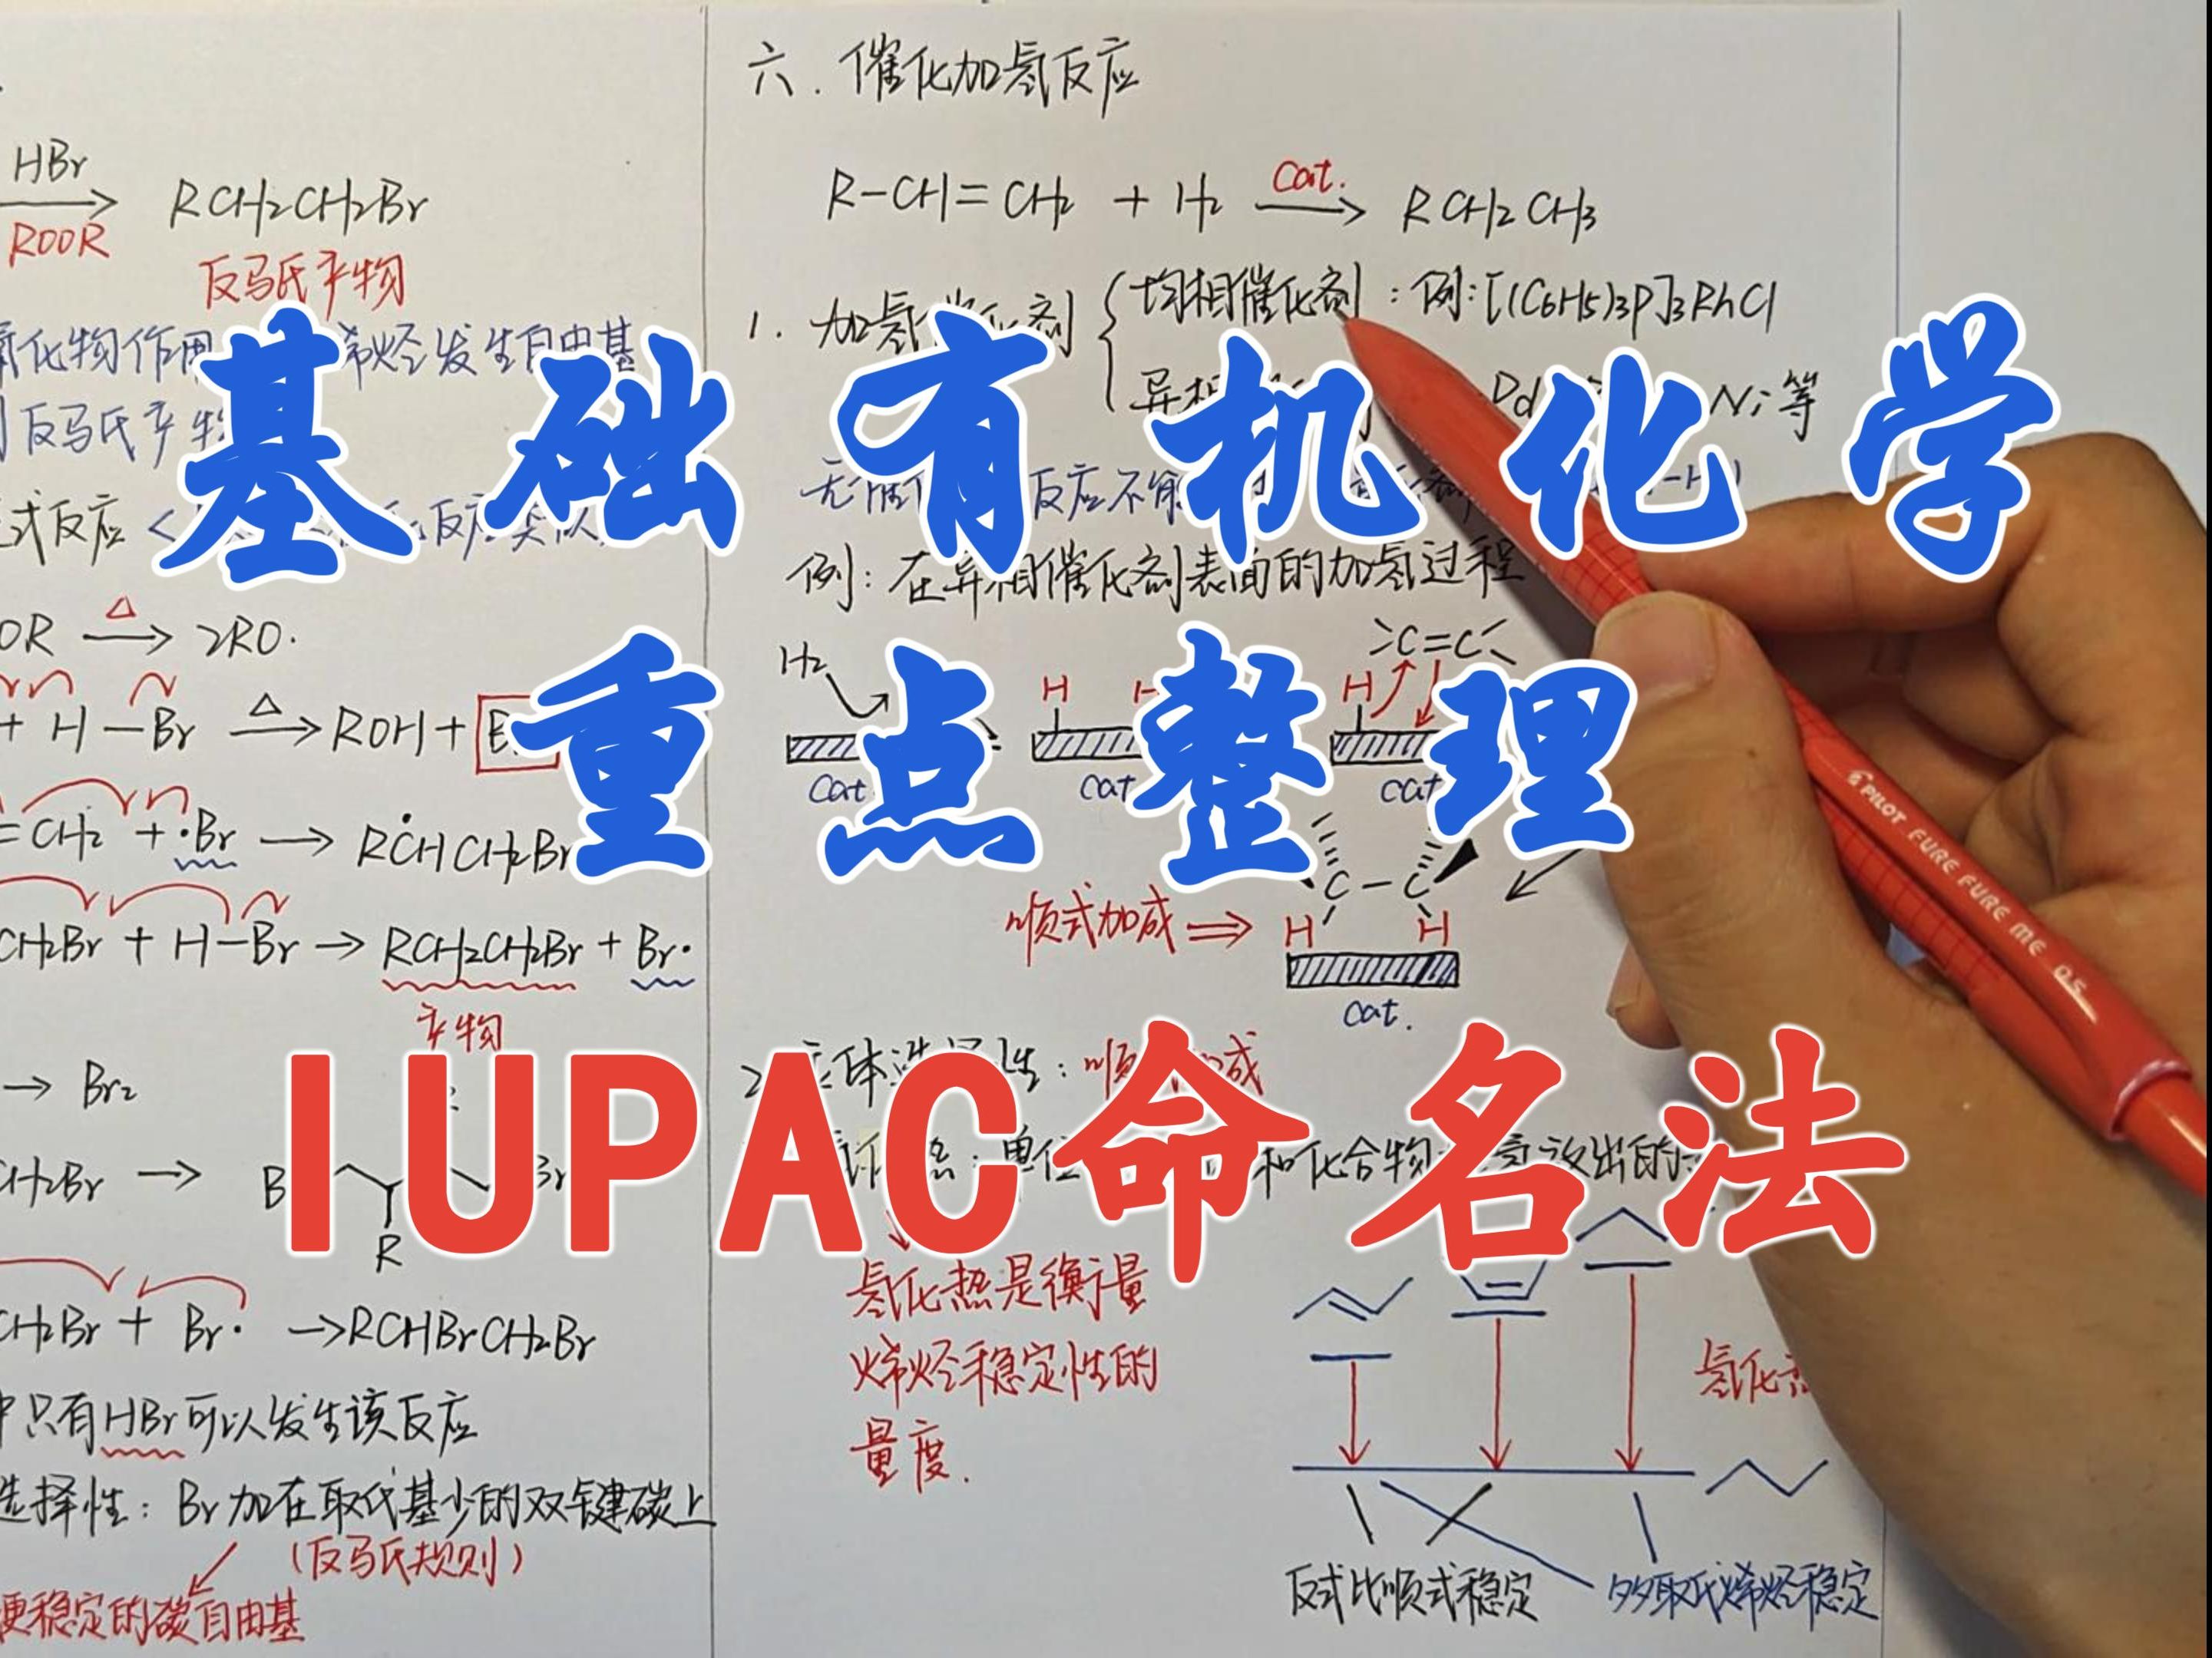 基础有机化学
重点整理
IUPAC命名法
HBr
ROOR
RCH2CH2Br
反马氏产物
氧化物作用
烯烃发生自由基
反马氏产
式反应
OR △→ 2RO·
+ H-Br △→ ROH +
=CH2 + ·Br → RĊHCH2Br
CH2Br + H-Br → RCH2CH2Br + Br·
产物
→ Br2
CH2Br →
R
CH2Br + Br· → RCHBrCH2Br
只有HBr可以发生该反应
选择性：Br加在取代基少的双键碳上
（反马氏规则）
更稳定的碳自由基
六.催化加氢反应
R-CH=CH2 + H2 Cat.→ RCH2CH3
1. 加氢催化剂
均相催化剂：例:[(C6H5)3P]3RhCl
异相
Pd
Ni等
反应不
例：在异相催化剂表面的加氢过程
H2
H
H
>C=C<
H
cat
cat
cat
顺式加成 ⇒
C-C
H
H
cat.
2
体选
性：顺
成
单位
和化合物
放出的
氢化热是衡量
烯烃稳定性的
量度.
氢化
反式比顺式稳定
多取代烯烃稳定
PILOT FURE FURE ME 0.5